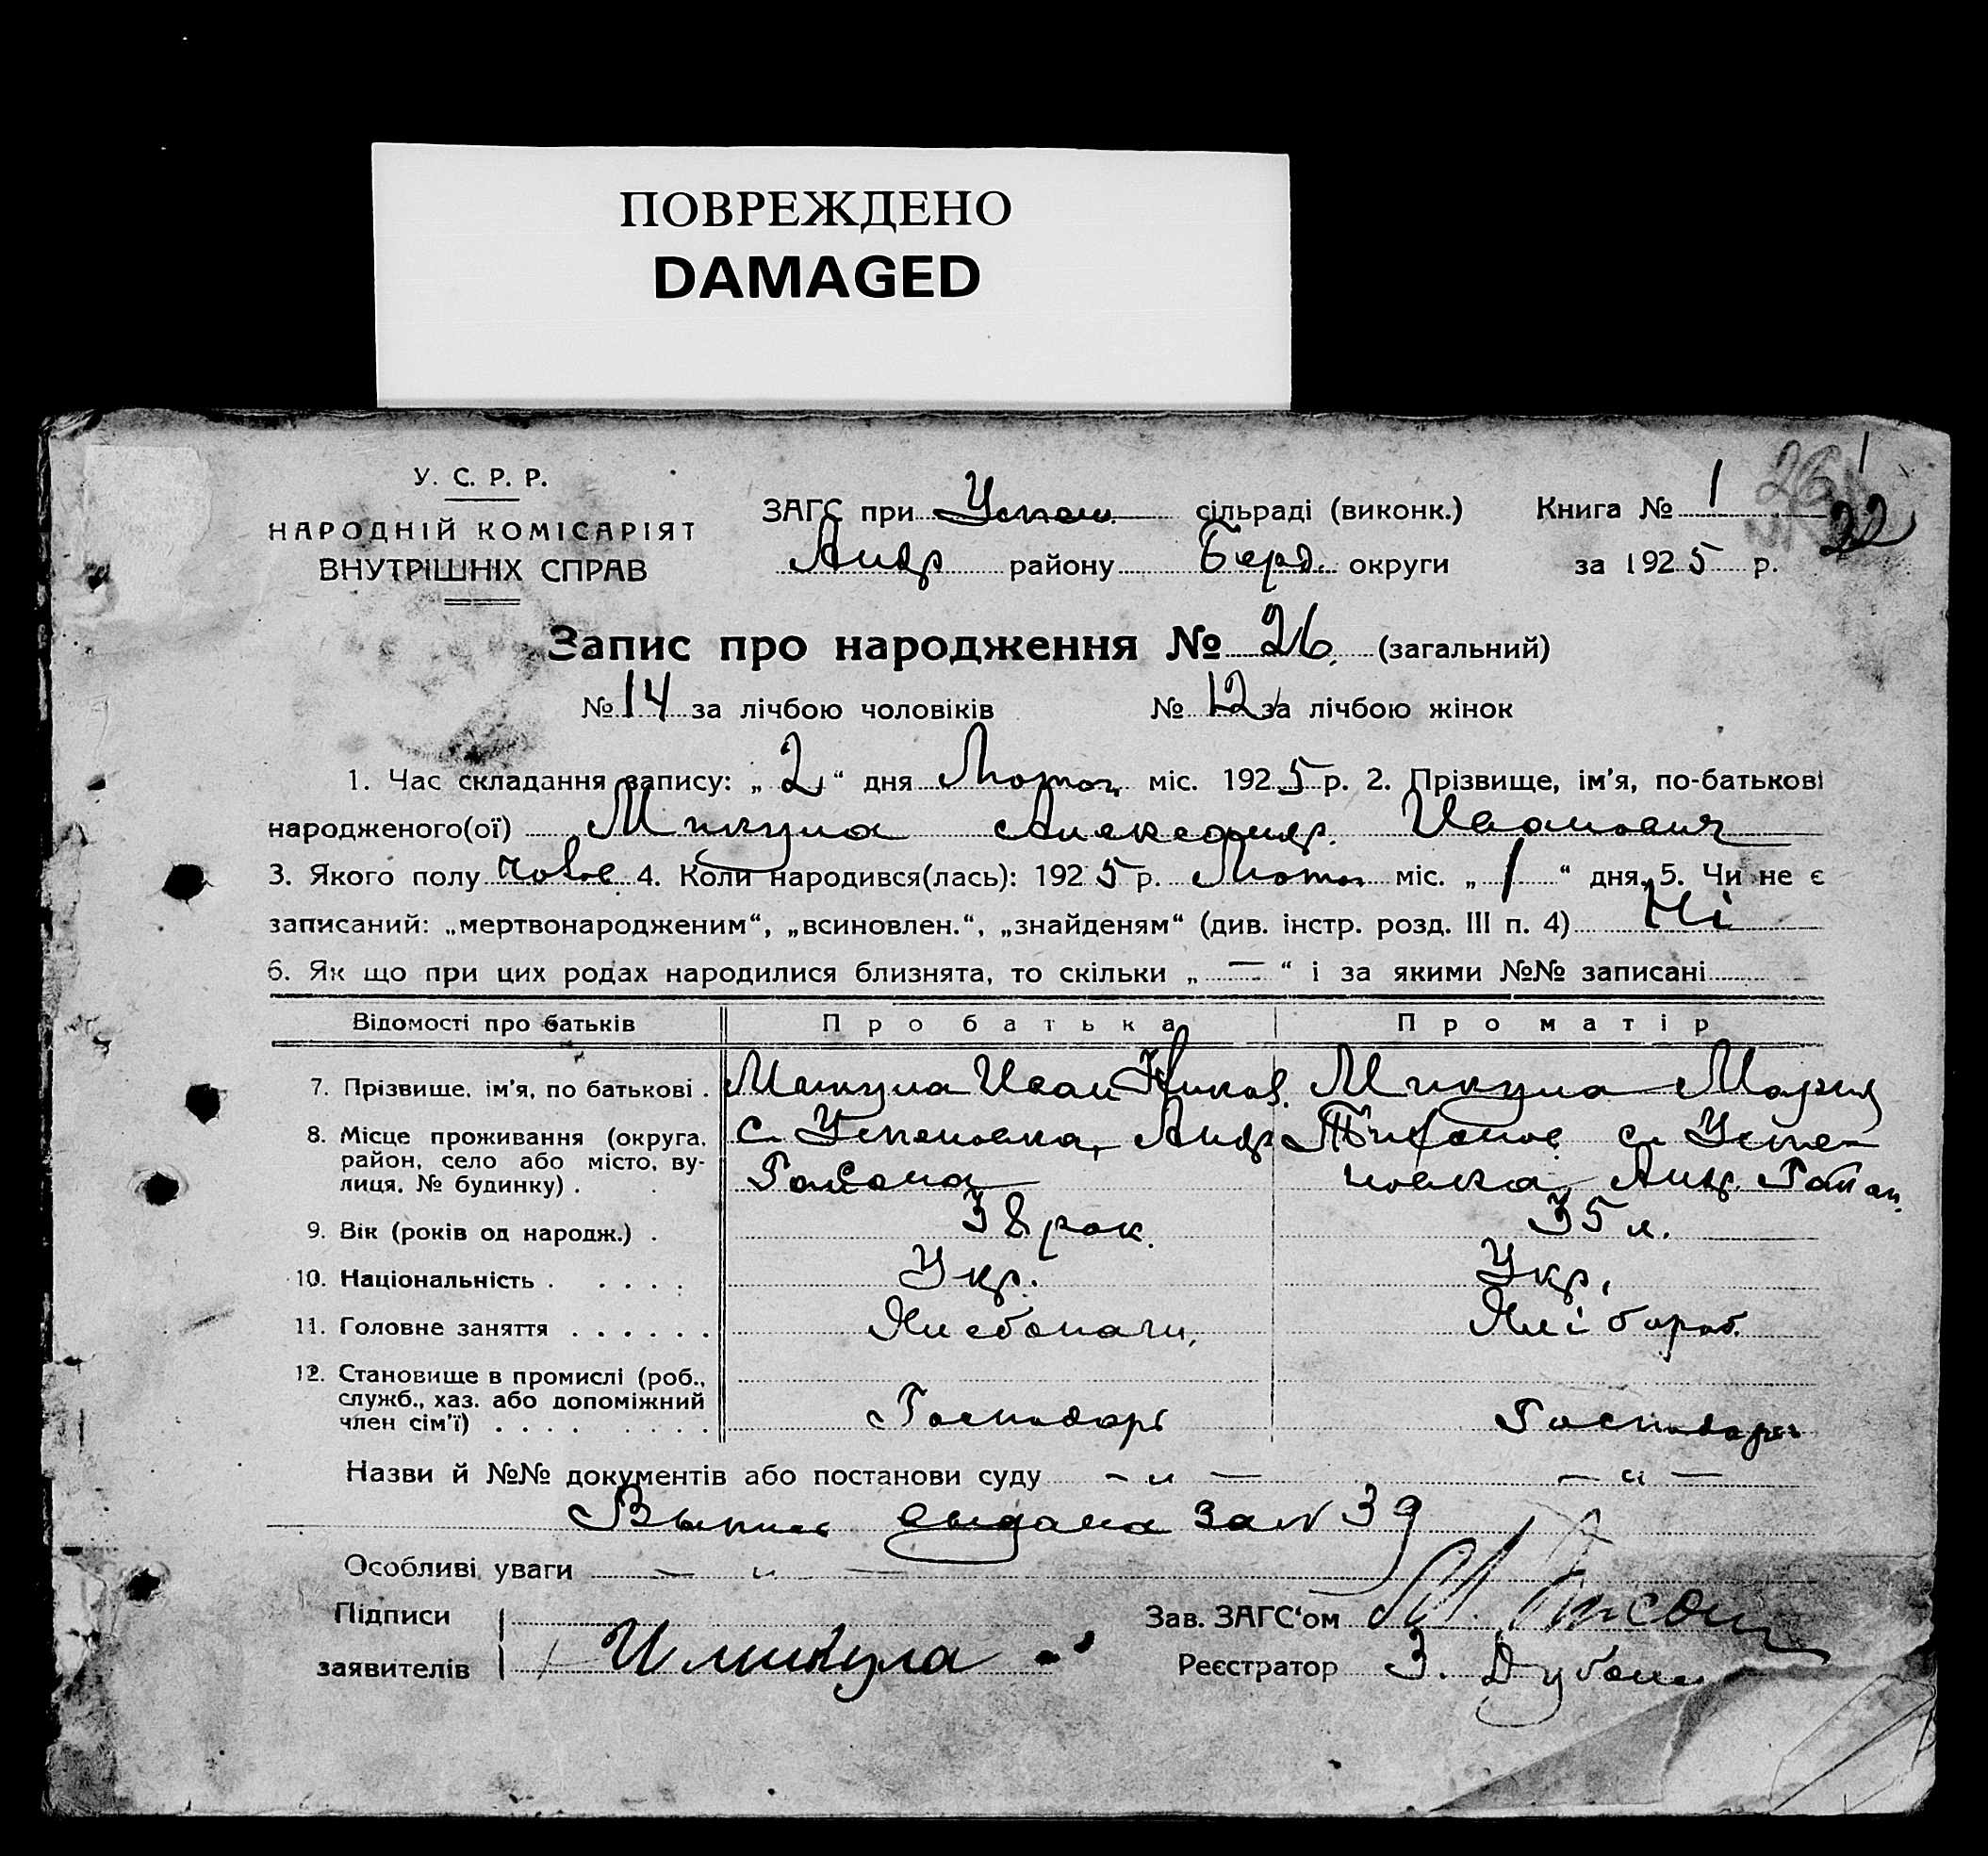 ПОВРЕЖДЕНО
DAMAGED
26 1
22
У. С. Р. Р.
НАРОДНІЙ КОМІСАРІЯТ
ВНУТРІШНІХ СПРАВ
ЗАГС при Успен. сільраді (виконк.) Книга № 1
Андр району Берд. округи за 1925 р.
Запис про народження № 26. (загальний)
№ 14 за лічбою чоловіків № 12 за лічбою жінок
1. Час складання запису: „ 2 “ дня Лютого міс. 1925 р. 2. Прізвище, ім'я, по-батькові
народженого(ої) Микула Александр. Иванович
3. Якого полу чолов. 4. Коли народився(лась): 1925 р. Лютого міс. „ 1 “ дня. 5. Чи не є
записаний: „мертвонародженим“, „всиновлен.“, „знайденям“ (див. інстр. розд. III п. 4) Ні
6. Як що при цих родах народилися близнята, то скільки „ — “ і за якими №№ записані
Відомості про батьків Про батька Про матір
7. Прізвище, ім'я, по батькові . Микула Иван Никол. Микула Мария
8. Місце проживання (округа, с. Успеновка, Андр с. Успе-
район, село або місто, ву- новка, Андр. Район.
лиця, № будинку) . Района
9. Вік (років од народж.) . 38 рок. 35 л.
10. Національність . . . . . Укр. Укр.
11. Головне заняття . . . . . .
12. Становище в промислі (роб.,
служб., хаз. або допоміжний
член сім'ї) . . . . . . . . Господарь Господарь
Назви й №№ документів або постанови суду — „ — — „ —
Выпись выдана за № 39
Особливі уваги — „ —
Підписи Зав. ЗАГС‘ом
заявителів И Микула Реєстратор З.